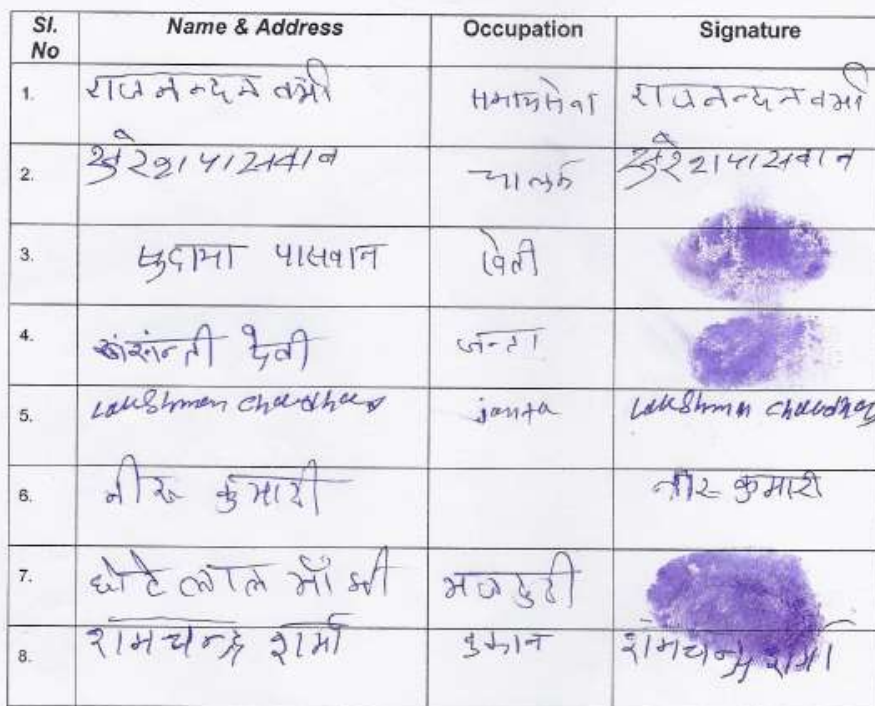 Sl. No Name & Address Occupation Signature
1. राजनन्दन वर्मा समाजसेवा राजनन्दन वर्मा
2. सुरेश पासवान चालक सुरेश पासवान
3. सुदामा पासवान खेती
4. देवी जन्ता
5. Lakshman Chaudhary janta Lakshman Chaudhary
6. नीरू कुमारी नीरू कुमारी
7. छोटे लाल माँझी मजदुरी
8. रामचन्द्र शर्मा दुकान रामचन्द्र शर्मा